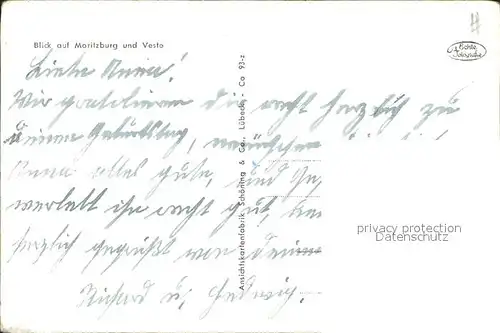 Blick auf Moritzburg und Veste
Echte Fotografie
Liebe Anna!
Wir gratulieren dir recht herzlich zu
deinem Geburtstag, wünschen
Anna alles gute, und
ihr recht gut,
herzlich gegrüßt von
Richard u. Hedwig.
Ansichtskartenfabrik Schöning & Co., Lübeck - Co 93-z
privacy protection
Datenschutz